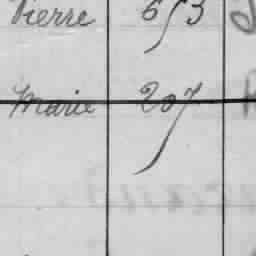 Pierre 653
Marie 207